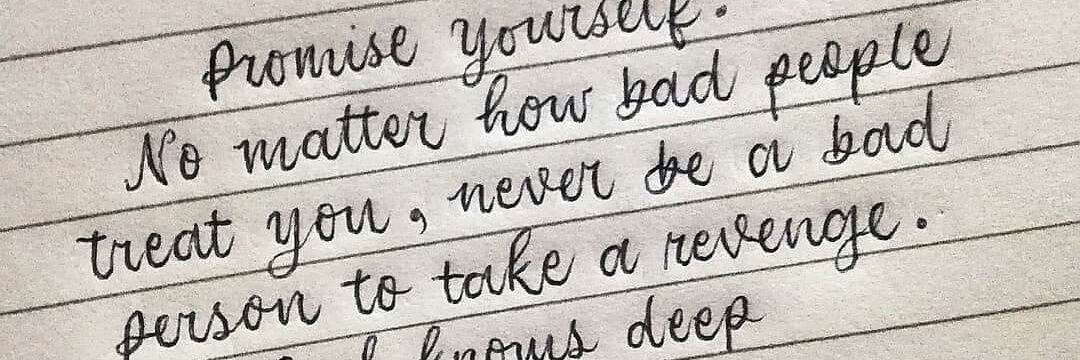 Promise yourself.
No matter how bad people
treat you, never be a bad
person to take a revenge.
knows deep